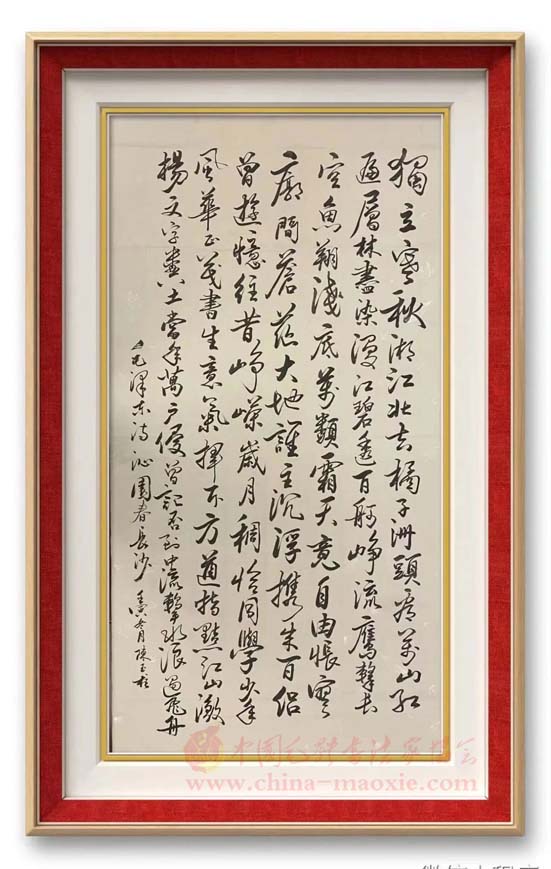 獨立寒秋湘江北去橘子洲頭看萬山紅
遍層林盡染漫江碧透百舸崢流鷹擊長
空魚翔淺底萬類霜天競自由悵寥
廓問蒼茫大地誰主沉浮攜來百侣
曾遊憶往昔崢嶸歲月稠恰同學少年
風華正茂書生意氣揮斥方遒指點江山激
揚文字糞土當年萬户侯曾記否到中流擊水浪遏飛舟
毛澤東詩沁園春長沙
中国毛體书法家协会
www.china-maoxie.com